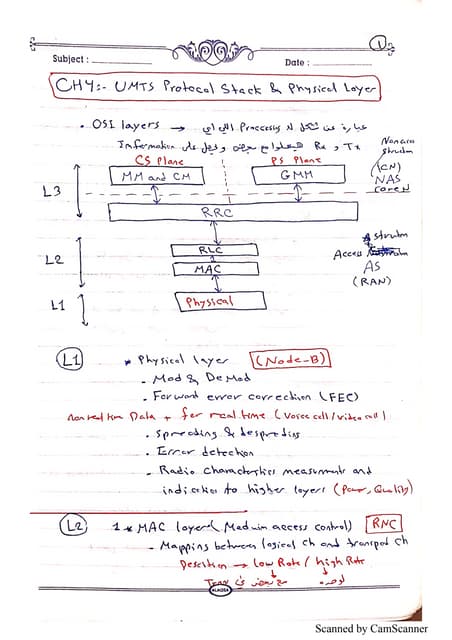 1
Subject :
Date :
CH4:- UMTS Protocol Stack & Physical Layer
. OSI layers → عبارة عن شكل لـ Processes اللي اي
Information هيعلموا مع بعض وعلى Rx و Tx
CS Plane PS Plane
MM and CM GMM
Stratum
(CN)
NAS
L3
RRC
RLC
L2
MAC
Stratum
Access
AS
(RAN)
L1
Physical
L1 * Physical layer (Node-B)
- Mod & DeMod
- Forward error correction (FEC)
Data + for real time (Voice call / Video call)
- Spreading & despreading
- Error detection
- Radio characteristics measurements and
indication to higher layers (Power, Quality)
L2 1 * MAC layer (Medium access control) RNC
- Mapping between logical ch and transport ch
→ low Rate / high Rate
مع بعض في لوحده
ALACSA
Scanned by CamScanner